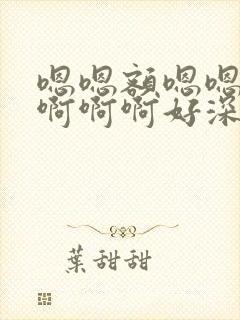 嗯嗯额嗯嗯
啊啊啊好深
葉甜甜